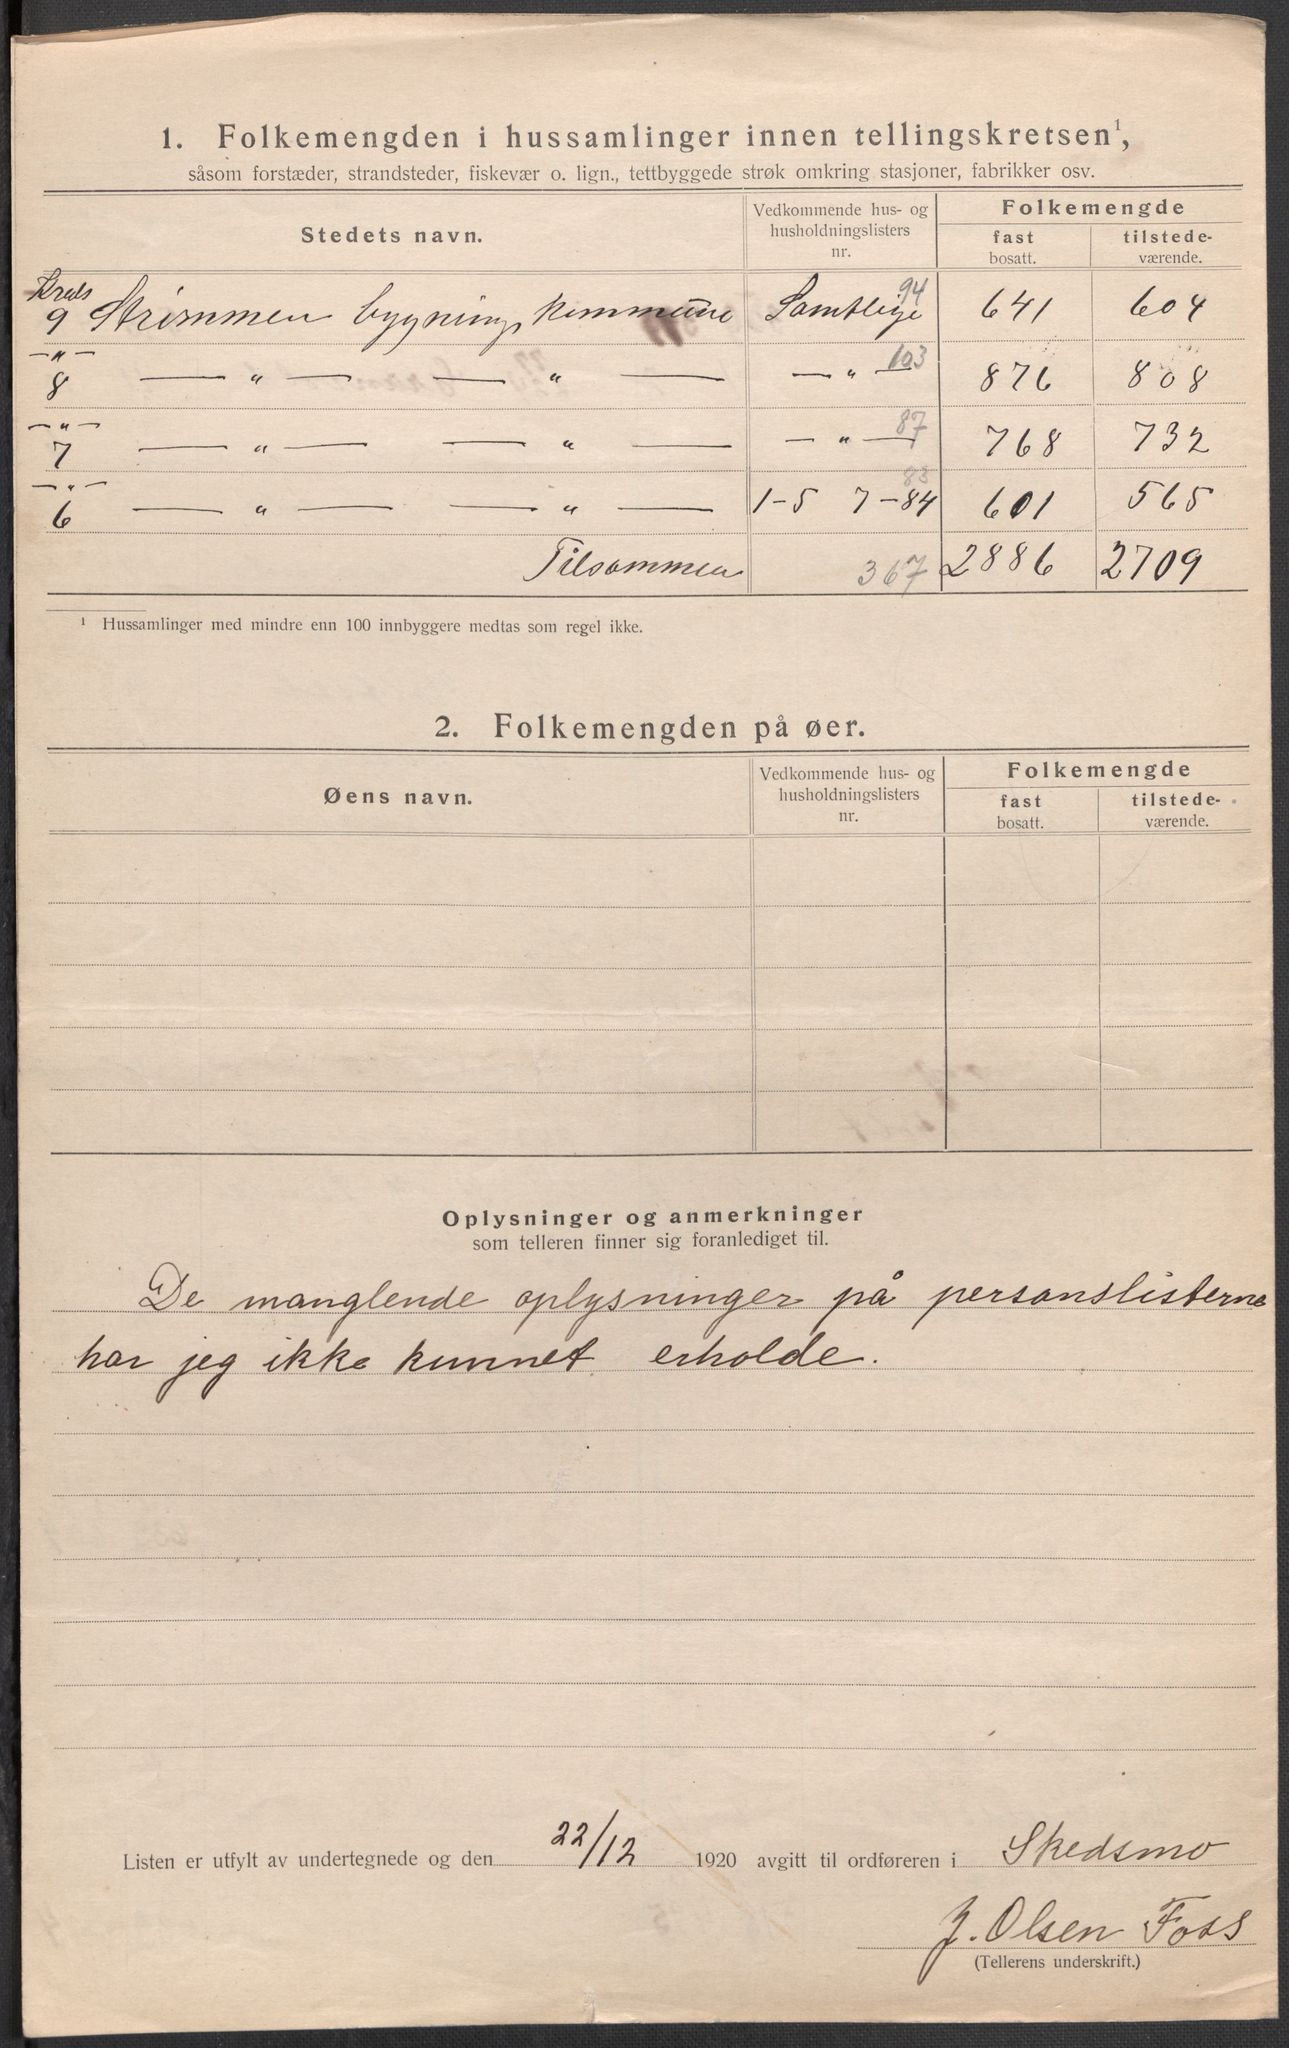 1. Folkemengden i hussamlinger innen tellingskretsen¹,
såsom forstæder, strandsteder, fiskevær o. lign., tettbyggede strøk omkring stasjoner, fabrikker osv.
Stedets navn.
Vedkommende hus- og husholdningslisters nr.
Folkemengde
fast bosatt.
tilstede-værende.
Kreds 9 Strømmen bygningskommune Samtlige 94 641 604
—"— 8 — " — — " — — " — 103 876 808
—"— 7 — " — — " — — " — 87 768 732
—"— 6 — " — — " — 1-5 7-84 83 601 565
Tilsammen 367 2886 2709
¹ Hussamlinger med mindre enn 100 innbyggere medtas som regel ikke.
2. Folkemengden på øer.
Øens navn.
Vedkommende hus- og husholdningslisters nr.
Folkemengde
fast bosatt.
tilstede-værende.
Oplysninger og anmerkninger
som telleren finner sig foranlediget til.
De manglende oplysninger på personslisterne
har jeg ikke kunnet erholde.
Listen er utfylt av undertegnede og den 22/12 1920 avgitt til ordføreren i Skedsmo
J. Olsen Foss
(Tellerens underskrift.)